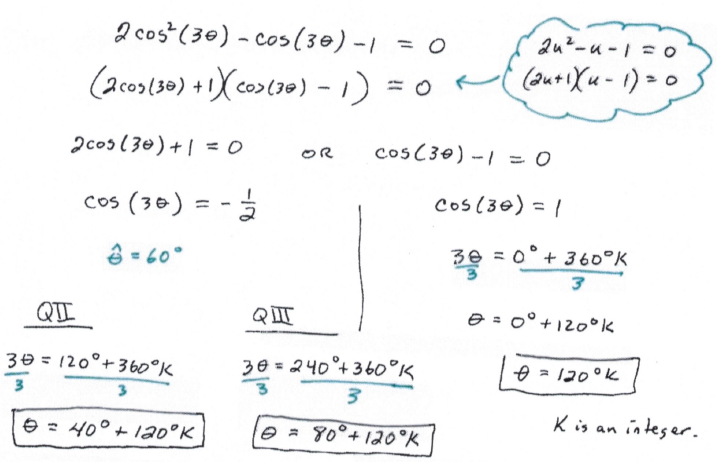 2cos²(3θ) - cos(3θ) - 1 = 0
(2cos(3θ) + 1)(cos(3θ) - 1) = 0
2u² - u - 1 = 0
(2u+1)(u - 1) = 0
2cos(3θ) + 1 = 0 OR cos(3θ) - 1 = 0
cos(3θ) = - 1/2
θ̂ = 60°
QII
3θ/3 = (120° + 360°K)/3
θ = 40° + 120°K
QIII
3θ/3 = (240° + 360°K)/3
θ = 80° + 120°K
cos(3θ) = 1
3θ/3 = (0° + 360°K)/3
θ = 0° + 120°K
θ = 120°K
K is an integer.